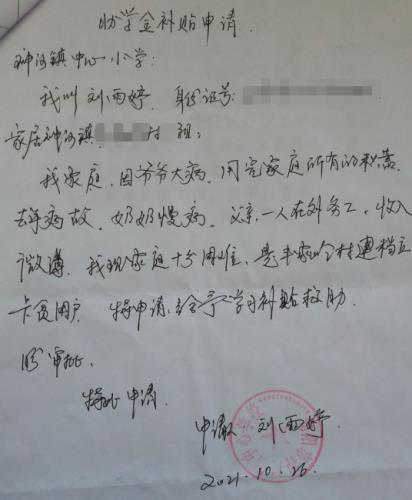 助学金补贴申请
神河镇中心小学:
我叫刘雨婷. 身份证号:
家居神河镇 村 组:
我家庭.因爷爷大病.用完家庭所有的积蓄.
去年病故.奶奶慢病.父亲一人在外务工,收入
微薄.我现家庭十分困难,是 村建档立
卡贫困户 特申请给予学习补贴救助.
盼审批.
特此申请.
申请人:刘雨婷.
2021.10.26.